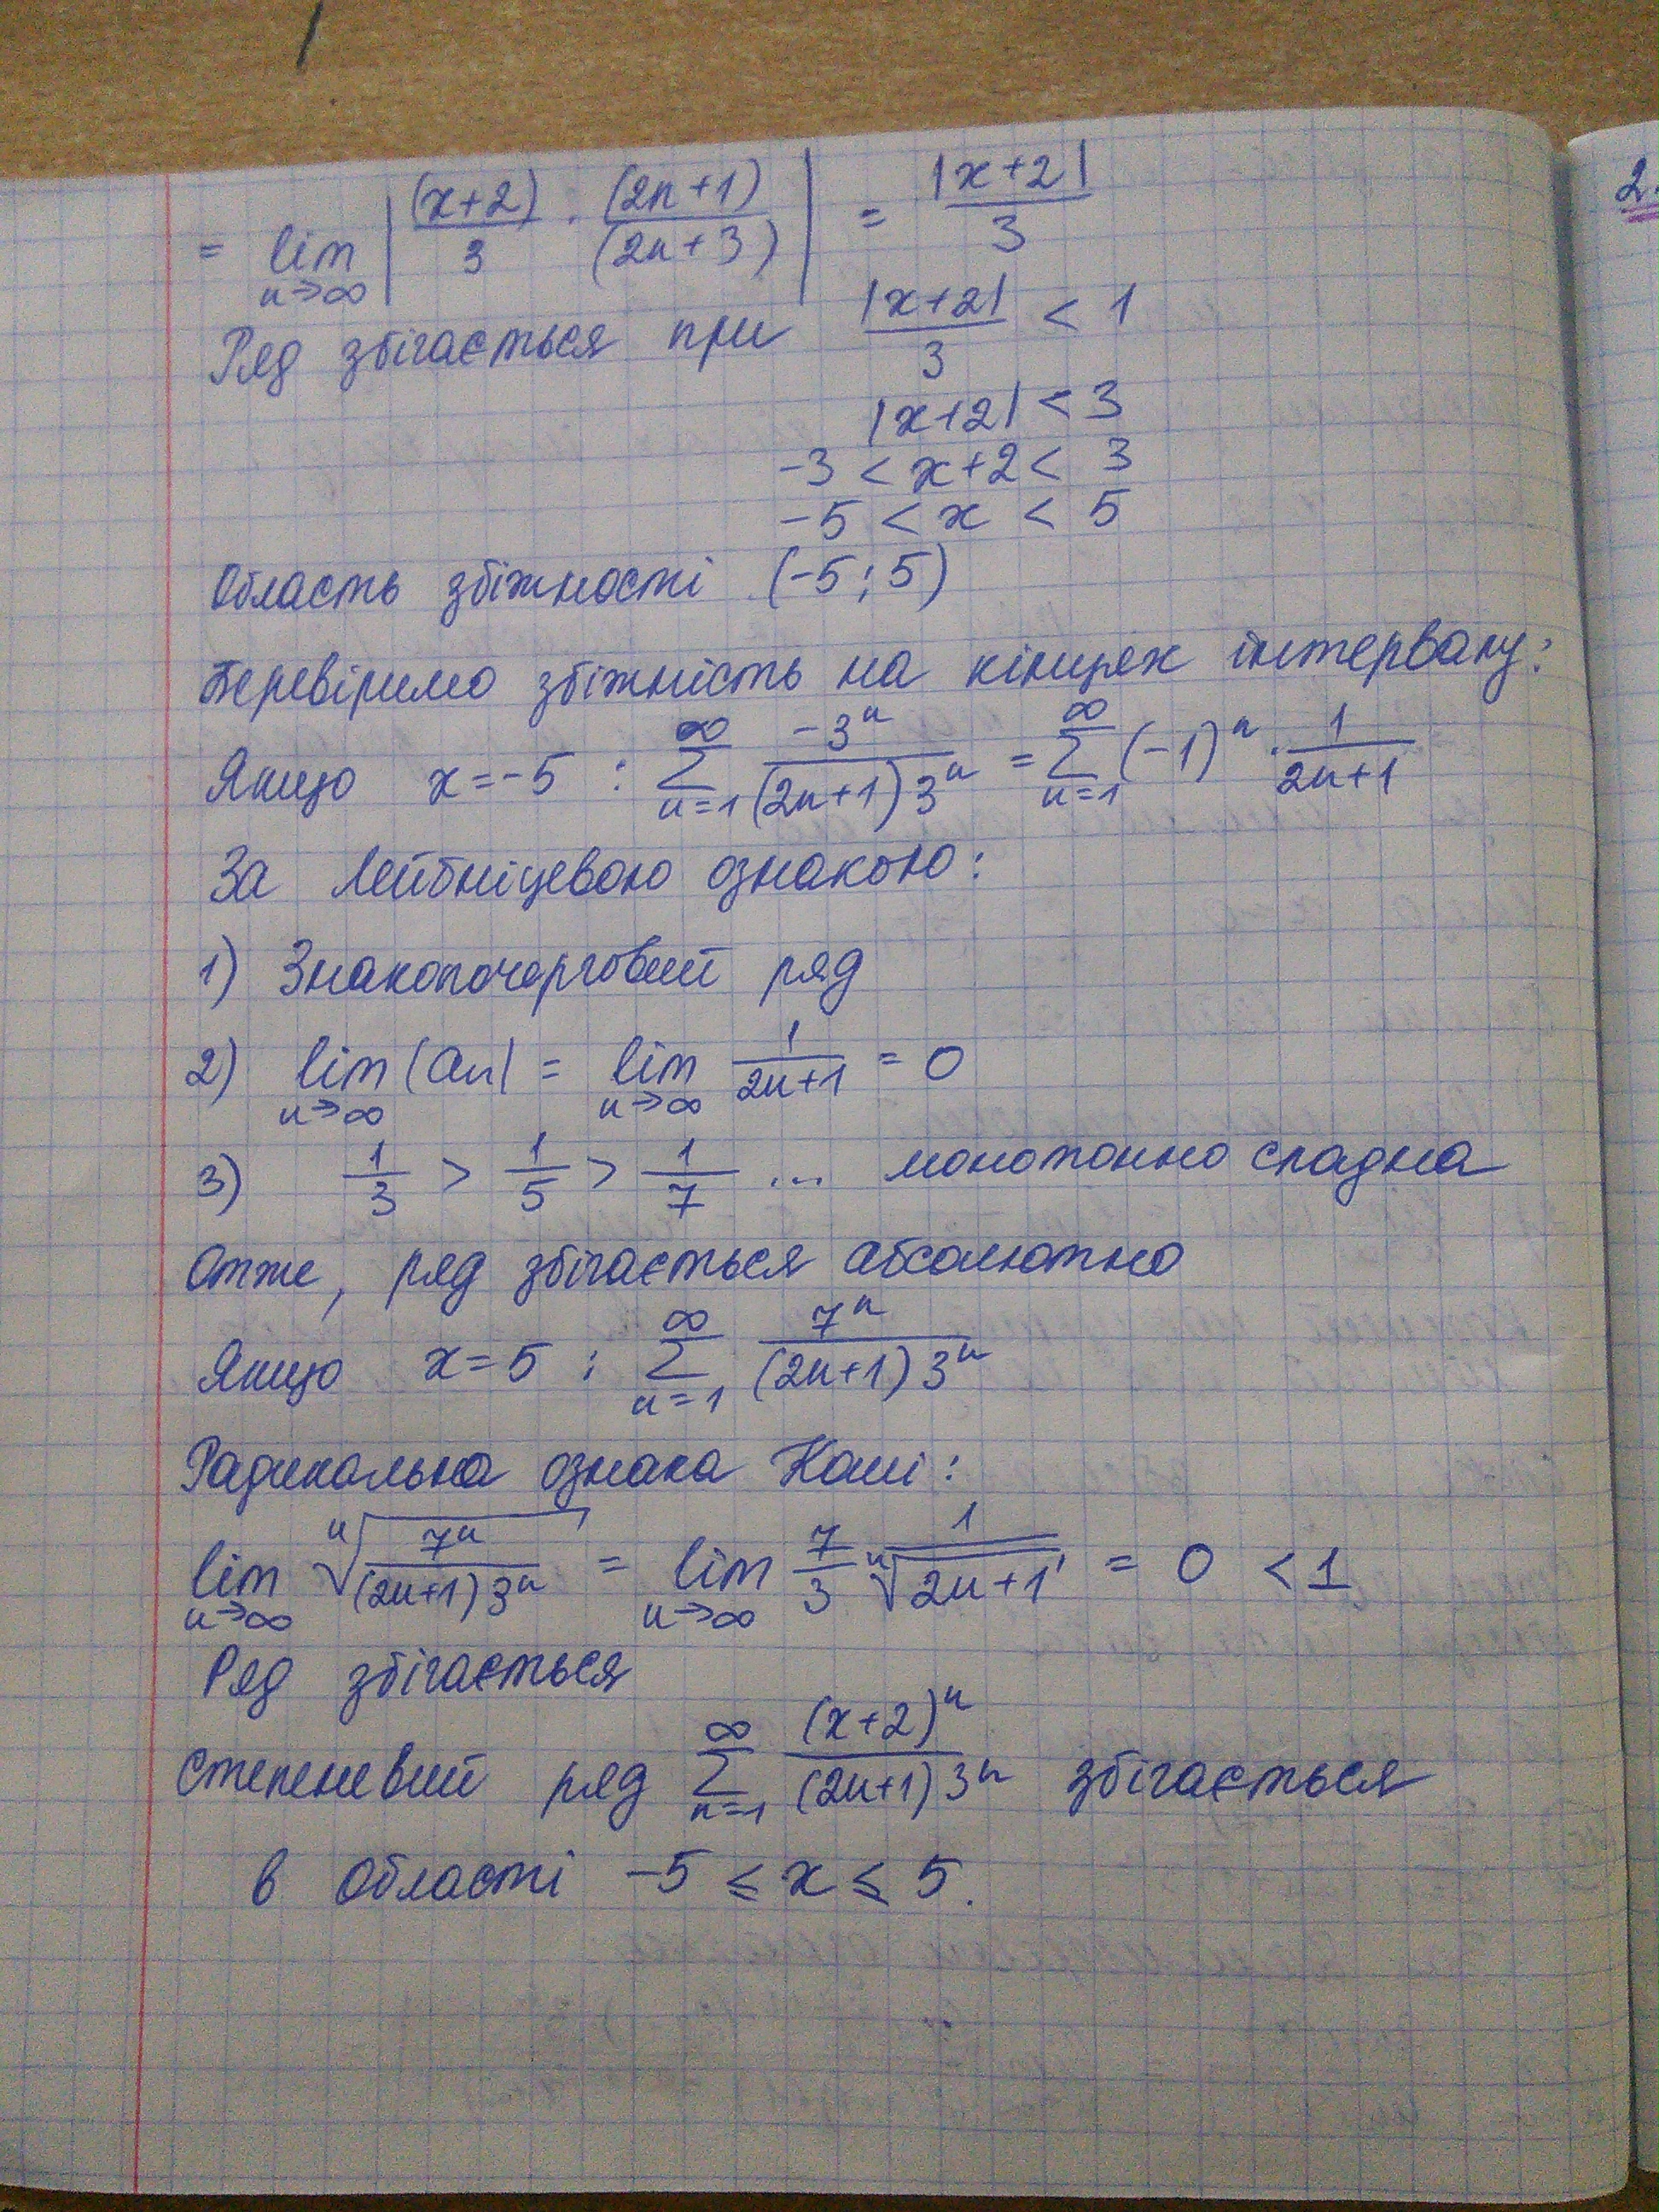 = lim n→∞ | (x+2)/3 · (2n+1)/(2n+3) | = |x+2|/3
2.
Ряд збігається при |x+2|/3 < 1
|x+2| < 3
-3 < x+2 < 3
-5 < x < 5
Область збіжності (-5; 5)
Перевіримо збіжність на кінцях інтервалу:
Якщо x=-5 : ∞ Σ n=1 -3ⁿ/(2n+1)3ⁿ = ∞ Σ n=1 (-1)ⁿ · 1/2n+1
За Лейбніцевою ознакою:
1) Знакопочерговий ряд
2) lim n→∞ |an| = lim n→∞ 1/2n+1 = 0
3) 1/3 > 1/5 > 1/7 ... монотонно спадна
Отже, ряд збігається абсолютно
Якщо x=5 : ∞ Σ n=1 7ⁿ/(2n+1)3ⁿ
Радикальна ознака Коші:
lim n→∞ ⁿ√(7ⁿ/(2n+1)3ⁿ) = lim n→∞ 7/3 1/ⁿ√(2n+1) = 0 < 1
Ряд збігається
Степеневий ряд ∞ Σ n=1 (x+2)ⁿ/(2n+1)3ⁿ збігається
в області -5 ≤ x ≤ 5.